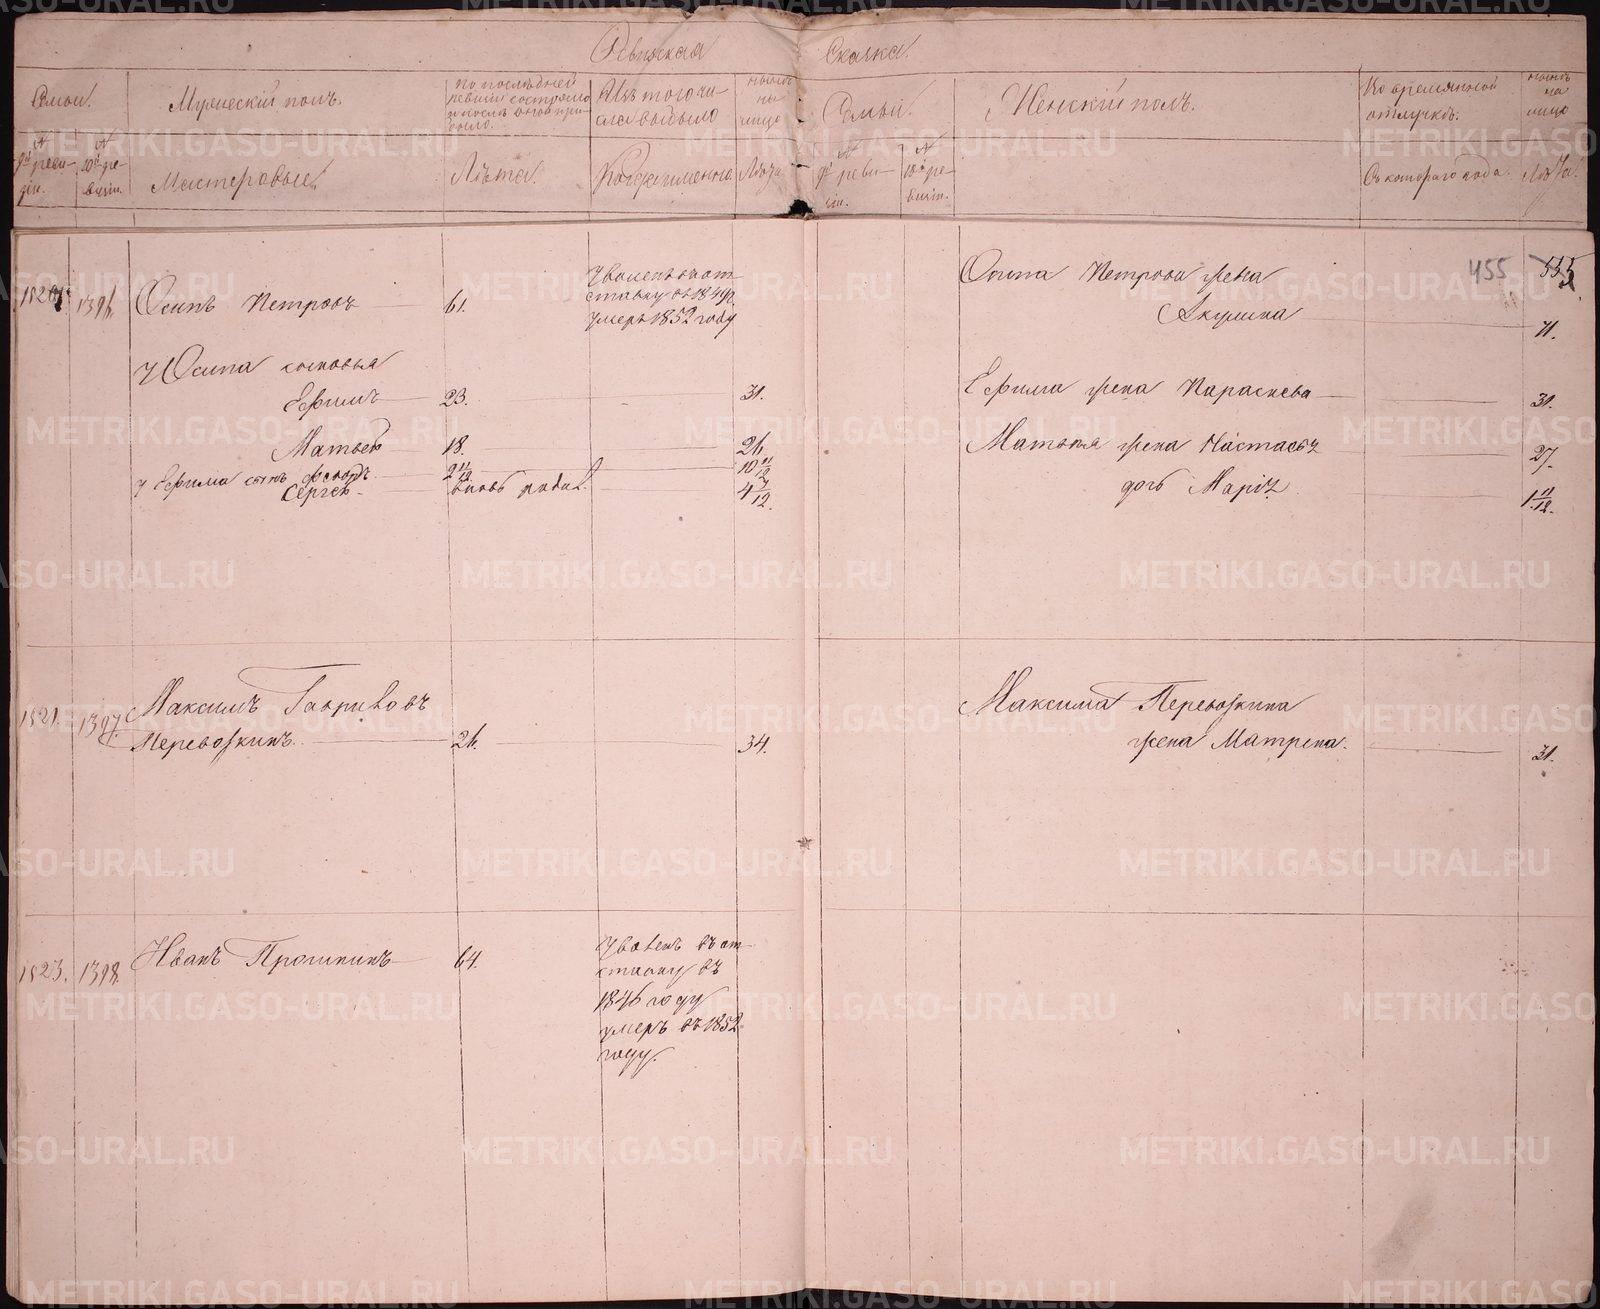 Ревизская Сказка.
Семьи.
Мужеский полъ.
По последней
ревизіи состояло
и после оной при-
было.
Изъ того чи-
сла выбыло
ныне
на
лицо
Семьи.
Женский полъ.
Во временной
отлучке.
ныне
на
лицо
№
9й реви-
зіи.
№
10й ре-
визіи.
Мастеровые
Лѣта.
Когда именно
Лѣта
№
9й реви-
зіи.
№
10й ре-
визіи.
Съ котораго года.
Лѣта.
455 555
1396. Осипъ Петровъ 61.
Уволенъ въ от
ставку въ 1849
умеръ 1852 году
Осипа Петрова жена
Акулина 71.
У Осипа сыновья
Ефимъ 23. 31.
Ефима жена Параскева 31.
Матвей 18. 26.
Матвея жена Настасья 27.
У Ефима сынъ Федоръ 2 11/12 10 11/12
Сергей вновь рожд. 4 7/12.
дочь Марія 1 11/12.
1821. 1397. Максимъ Гавриловъ
Перевозкинъ. 26. 34.
Максима Перевозкина
жена Матрена. 31.
1823. 1398. Иванъ Прошкинъ 64.
Уволенъ въ от
ставку въ
1846 году
умеръ въ 1852
году.
METRIKI.GASO-URAL.RU